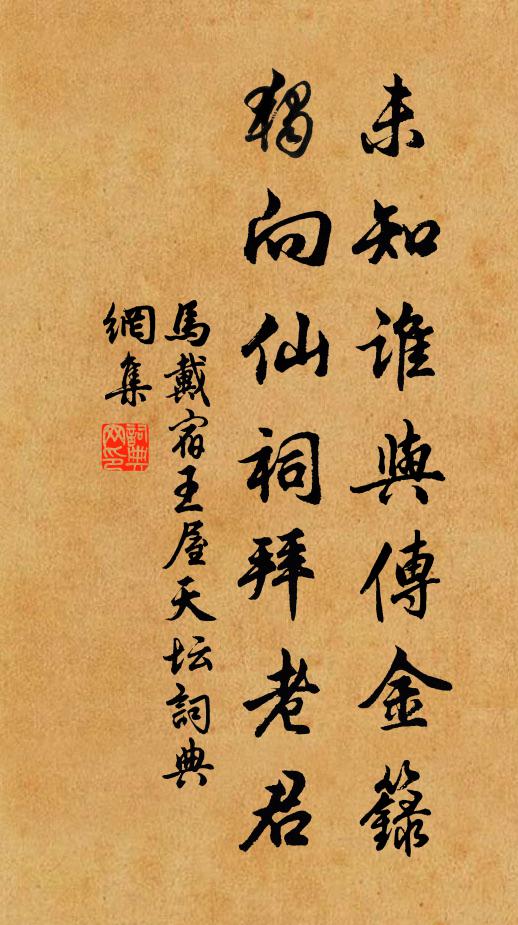 未知谁與傳金籙
獨向仙祠拜老君
馬戴宿王屋天坛詞典
網集
詞典
网印